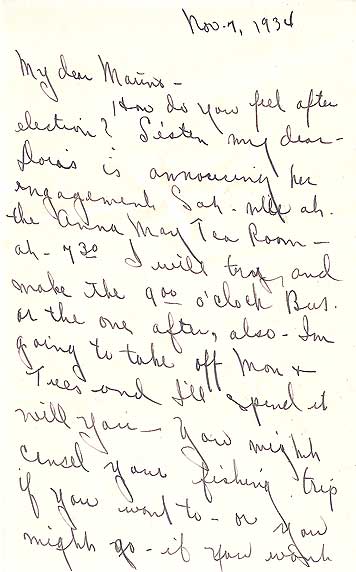 Nov. 7, 1934
My dear Mauno -
How do you feel after
election? Listen my dear -
Doris is announcing her
engagement Sat. nite at
the Anna May Tea Room -
at - 7 30 I will try, and
make the 9 00 o'clock Bus.
or the one after, also - I'm
going to take off Mon &
Tues - and I'll spend it
with you - You might
cancel your fishing trip
if you want to - or you
might go - if you want